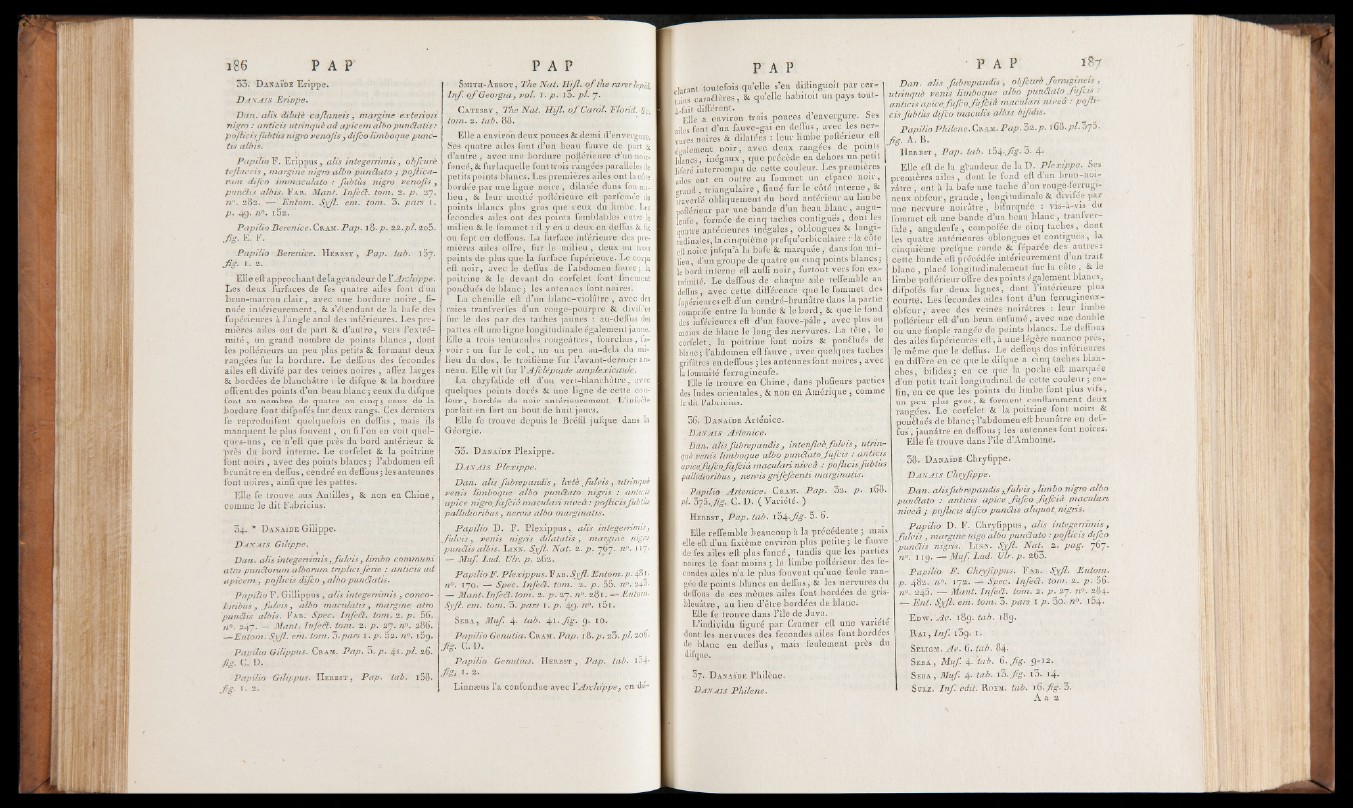 186 P A P
33. DANAÏDE Erippe.
DANAIS Erippe.
Dan. alis dilutè castaneis, margine exteriori
nigro : anticis utrinquè ad apicem albo punctatis :
posticis subtùs nigro venosis, disco limboque punc-
tis albis.
Papilio F. Erippus, alis integerrimis, obscurè
testaceis, margine nigro albo punctato ; postica-
rum disco immaculato : subtùs nigro venosis,
punctis albis. FAB. Mant. Insect. tom. 2. p. 27.
nº. 282. — Entom. Syst. em. tom. 3. pars 1.
p. 49. nº. 152.
Papilio Berenice. CRAM. Pap. 18. p. 22. pl. 205.
fig. E. F.
Papilio Berenice. HERBST, Pap. tab. 157.
fig. 1. 2.
Elle est approchant de la grandeur de l'Archippe.
Les deux surfaces de ses quatre ailes sont d'un
brun-marron clair, avec une bordure noire, si-
nuée intérieurement, & s'étendant de la base des
supérieures à l'angle anal des inférieures. Les pre-
mières ailes ont de part & d'autre, vers l'extré-
mité, un grand nombre de points blancs, dont
les postérieurs un peu plus petits & formant deux
rangées sur la bordure. Le dessous des secondes
ailes est divisé par des veines noires, assez larges
& bordées de blanchâtre : le disque & la bordure
offrent des points d'un beau blanc ; ceux du disque
sont au nombre de quatre ou cinq ; ceux de la
bordure sont disposés sur deux rangs. Ces derniers
se reproduisent quelquefois en dessus, mais ils
manquent le plus souvent, ou si l'on en voit quel-
ques-uns, ce n'est que près du bord antérieur &
près du bord interne. Le corselet & la poitrine
sont noirs, avec des points blancs ; l'abdomen est
brunâtre en dessus, cendré en dessous ; les antennes
sont noires, ainsi que les pattes.
Elle se trouve aux Antilles, & non en Chine,
comme le dit Fabricius.
34. * DANAÏDE Gilippe.
DANAIS Gilippe.
Dan. alis integerrimis, fulvis, limbo communi
atro punctorum alborum triplici serie : anticis ad
apicem, posticis disco, albo punctatis.
Papilio F. Gillippus, alis integerrimis, conco-
loribus, fulvis, albo maculatis, margine atro
punctis albis. FAB. Spec. Insect. tom. 2. p. 56.
nº. 247. — Mant. Insect. tom. 2. p. 27. nº. 286.
— Entom. Syst. em. tom. 3. pars 1. p. 52. nº. 159.
Papilio Gilippus. CRAM. Pap. 3. p. 41. pl. 26.
fig. C. D.
Papilio Gilippus. HERBST, Pap. tab. 158.
fig. 1. 2.
P A P
SMITH-ABBOT, The Nat. Hist. of the rarer lepid.
Inf. of Georgia, vol. 1. p. 13. pl. 7.
CATESBY, The Nat. Hist. of Carol. Florid. &c.
tom. 2. tab. 88.
Elle a environ deux pouces & demi d'envergure.
Ses quatre ailes sont d'un beau fauve de part &
d'autre, avec une bordure postérieure d'un noir
foncé, & sur laquelle sont trois rangées parallèles de
petits points blancs. Les premières ailes ont la côte
bordée par une ligne noire, dilatée dans son mi-
lieu, & leur moitié postérieure est parsemée de
points blancs plus gros que ceux du limbe. Les
secondes ailes ont des points semblables entre le
milieu & le sommet : il y en a deux en dessus & six
ou sept en dessous. La surface inférieure des pre-
mières ailes offre, sur le milieu, deux ou trois
points de plus que la surface supérieure. Le corps
est noir, avec le dessus de l'abdomen fauve ; la
poitrine & le devant du corselet sont finement
ponctués de blanc ; les antennes sont noires.
La chenille est d'un blanc-violâtre, avec des
raies transverses d'un rouge-pourpre & divisées
sur le dos par des taches jaunes : au-dessus des
pattes est une ligne longitudinale également jaune.
Elle a trois tentacules rougeâtres, fourchus, sa-
voir : un sur le col, un un peu au-delà du mi-
lieu du dos, le troisième sur l'avant-dernier an-
neau. Elle vit sur l'Asclépiade amplexicaule.
La chrysalide est d'un vert-blanchâtre, avec
quelques points dorés & une ligne de cette cou-
leur, bordée de noir antérieurement. L'insecte
parfait en sort au bout de huit jours.
Elle se trouve depuis le Brésil jusque dans la
Géorgie.
35. DANAÏDE Plexippe.
DANAIS Plexippe.
Dan. alis subrepandis, lætè fulvis, utrinquè
venis limboque albo punctato nigris : anticis
apice nigro, fasciâ maculari niveâ : posticis subtùs
pallidioribus, nervis albo marginatis.
Papilio D. F. Plexippus, alis integerrimis,
fulvis, venis nigris dilatatis, margine nigro
punctis albis. LINN. Syst. Nat. 2. p. 767. nº. 117.
— Mus. Lud. Ulr. p. 262.
Papilio F. Plexippus. FAB. Syst. Entom. p. 481.
nº. 170. — Spec. Insect. tom. 2. p. 55. nº. 243.
— Mant. Insect. tom. 2. p. 27. nº. 281. — Entom.
Syst. em. tom. 3. pars 1. p. 49. nº. 151.
SEBA, Mus. 4. tab. 41. fig. 9. 10.
Papilio Genutia. CRAM. Pap. 18. p. 23. pl. 206.
fig. C. D.
Papilio Genutius. HERBST, Pap. tab. 154.
fig. 1. 2.
Linnæus l'a confondue avec l'Archippe, en dé-
P A P
clarant toutefois qu'elle s'en distinguoit par cer-
tains caractères, & qu'elle habitoit un pays tout-
à-fait différent.
Elle a environ trois pouces d'envergure. Ses
ailes sont d'un fauve-gai en dessus, avec les ner-
vures noires & dilatées : leur limbe postérieur est
également noir, avec deux rangées de points
blancs, inégaux, que précède en dehors un petit
liséré interrompu de cette couleur. Les premières
ailes ont en outre au sommet un espace noir,
grand, triangulaire, sinué sur le côté interne, &
traversé obliquement du bord antérieur au limbe
postérieur par une bande d'un beau blanc, angu-
leuse, formée de cinq taches contiguës, dont les
quatre antérieures inégales, oblongues & longi-
tudinales, la cinquième presqu'orbiculaire : la côte
est noire jusqu'à la base & marquée, dans son mi-
lieu, d'un groupe de quatre ou cinq points blancs ;
le bord interne est aussi noir, surtout vers son ex-
trémité. Le dessous de chaque aile ressemble au
dessus, avec cette différence que le sommet des
supérieures est d'un cendré-brunâtre dans la partie
comprise entre la bande & le bord, & que le fond
des inférieures est d'un fauve-pâle, avec plus ou
moins de blanc le long des nervures. La tête, le
corselet, la poitrine sont noirs & ponctués de
blanc ; l'abdomen est fauve, avec quelques taches
grisâtres en dessous ; les antennes sont noires, avec
la sommité ferrugineuse.
Elle se trouve en Chine, dans plusieurs parties
des Indes orientales, & non en Amérique, comme
le dit Fabricius.
36. DANAÏDE Arténice.
DANAIS Artenice.
Dan. alis subrepandis, intensicè fulvis, utrin-
què venis limboque albo punctato fuscis : anticis
apice fusco, fasciâ maculari niveâ : posticis subtùs
pallidioribus, nervis grisescenti marginatis.
Papilio Artenice. CRAM. Pap. 32. p. 168.
pl. 375. fig. C. D. ( Variété. )
HERBST, Pap. tab. 154. fig. 5. 6.
Elle ressemble beaucoup à la précédente ; mais
elle est d'un sixième environ plus petite ; le fauve
de ses ailes est plus foncé, tandis que les parties
noires le sont moins ; le limbe postérieur des se-
condes ailes n'a le plus souvent qu'une seule ran-
gée de points blancs en dessus, & les nervures du
dessous de ces mêmes ailes sont bordées de gris-
bleuâtre, au lieu d'être bordées de blanc.
Elle se trouve dans l'île de Java.
L'individu figuré par Cramer est une variété
dont les nervures des secondes ailes sont bordées
de blanc en dessus, mais seulement près du
disque.
37. DANAÏDE Philène.
DANAIS Philene.
P A P 187
Dan. alis subrepandis, obscurè ferrugineis,
utrinquè venis limboque albo punctato fuscis :
anticis apice fusco, fasciâ maculari niveâ : posti-
cis subtùs disco maculis albis bifidis.
Papilio Philene. CRAM. Pap. 32. p. 168. pl. 375.
fig. A. B.
HERBST, Pap. tab. 154. fig. 3. 4.
Elle est de la grandeur de la D. Plexippe. Ses
premières ailes, dont le fond est d'un brun-noi-
râtre, ont à la base une tache d'un rouge-ferrugi-
neux obscur, grande, longitudinale & divisée par
une nervure noirâtre, bifurquée : vis-à-vis du
sommet est une bande d'un beau blanc, transver-
sale, anguleuse, composée de cinq taches, dont
les quatre antérieures oblongues et contiguës, la
cinquième presque ronde & séparée des autres :
cette bande est précédée intérieurement d'un trait
blanc, placé longitudinalement sur la côte, & le
limbe postérieur offre des points également blancs,
disposés sur deux lignes, dont l'intérieure plus
courte. Les secondes ailes sont d'un ferrugineux-
obscur, avec des veines noirâtres : leur limbe
postérieur est d'un brun enfumé, avec une double
ou une simple rangée de points blancs. Le dessous
des ailes supérieures est, à une légère nuance près,
le même que le dessus. Le dessous des inférieures
en diffère en ce que le disque a cinq taches blan-
ches, bifides ; en ce que la poche est marquée
d'un petit trait longitudinal de cette couleur ; en-
fin, en ce que les points du limbe sont plus vifs,
un peu plus gros, & forment constamment deux
rangées. Le corselet & la poitrine sont noirs &
ponctués de blanc ; l'abdomen est brunâtre en des-
sus, jaunâtre en dessous ; les antennes sont noires.
Elle se trouve dans l'île d'Amboine.
38. DANAÏDE Chrysippe.
DANAIS Chrysippe.
Dan. alis subrepandis, fulvis, limbo nigro albo
punctato : anticis apice fusco, fasciâ maculari
niveâ ; posticis disco punctis aliquot nigris.
Papilio D. F. Chrysippus, alis integerrimis,
fulvis, margine nigo albo punctato : posticis disco
punctis nigris. LINN. Syst. Nat. 2. pag. 767.
nº. 119. — Mus. Lud. Ulr. p. 263.
Papilio F. Chrysippus. FAB. Syst. Entom.
p. 482. nº. 172. — Spec. Insect. tom. 2. p. 56.
nº. 245. — Mant. Insect. tom. 2. p. 27. nº. 284.
— Ent. Syst. em. tom. 3. pars 1 p. 50. nº. 154.
EDW. Av. 189. tab. 189.
RAI, Inf. 139. 1.
SELIGM. Av. 6. tab. 84.
SEBA, Mus. 4. tab. 6. fig. 9-12.
SEBA, Mus. 4. tab. 13. fig. 13. 14.
SULZ. Inf. edit. ROEM. tab. 16. fig. 3.
A a 2